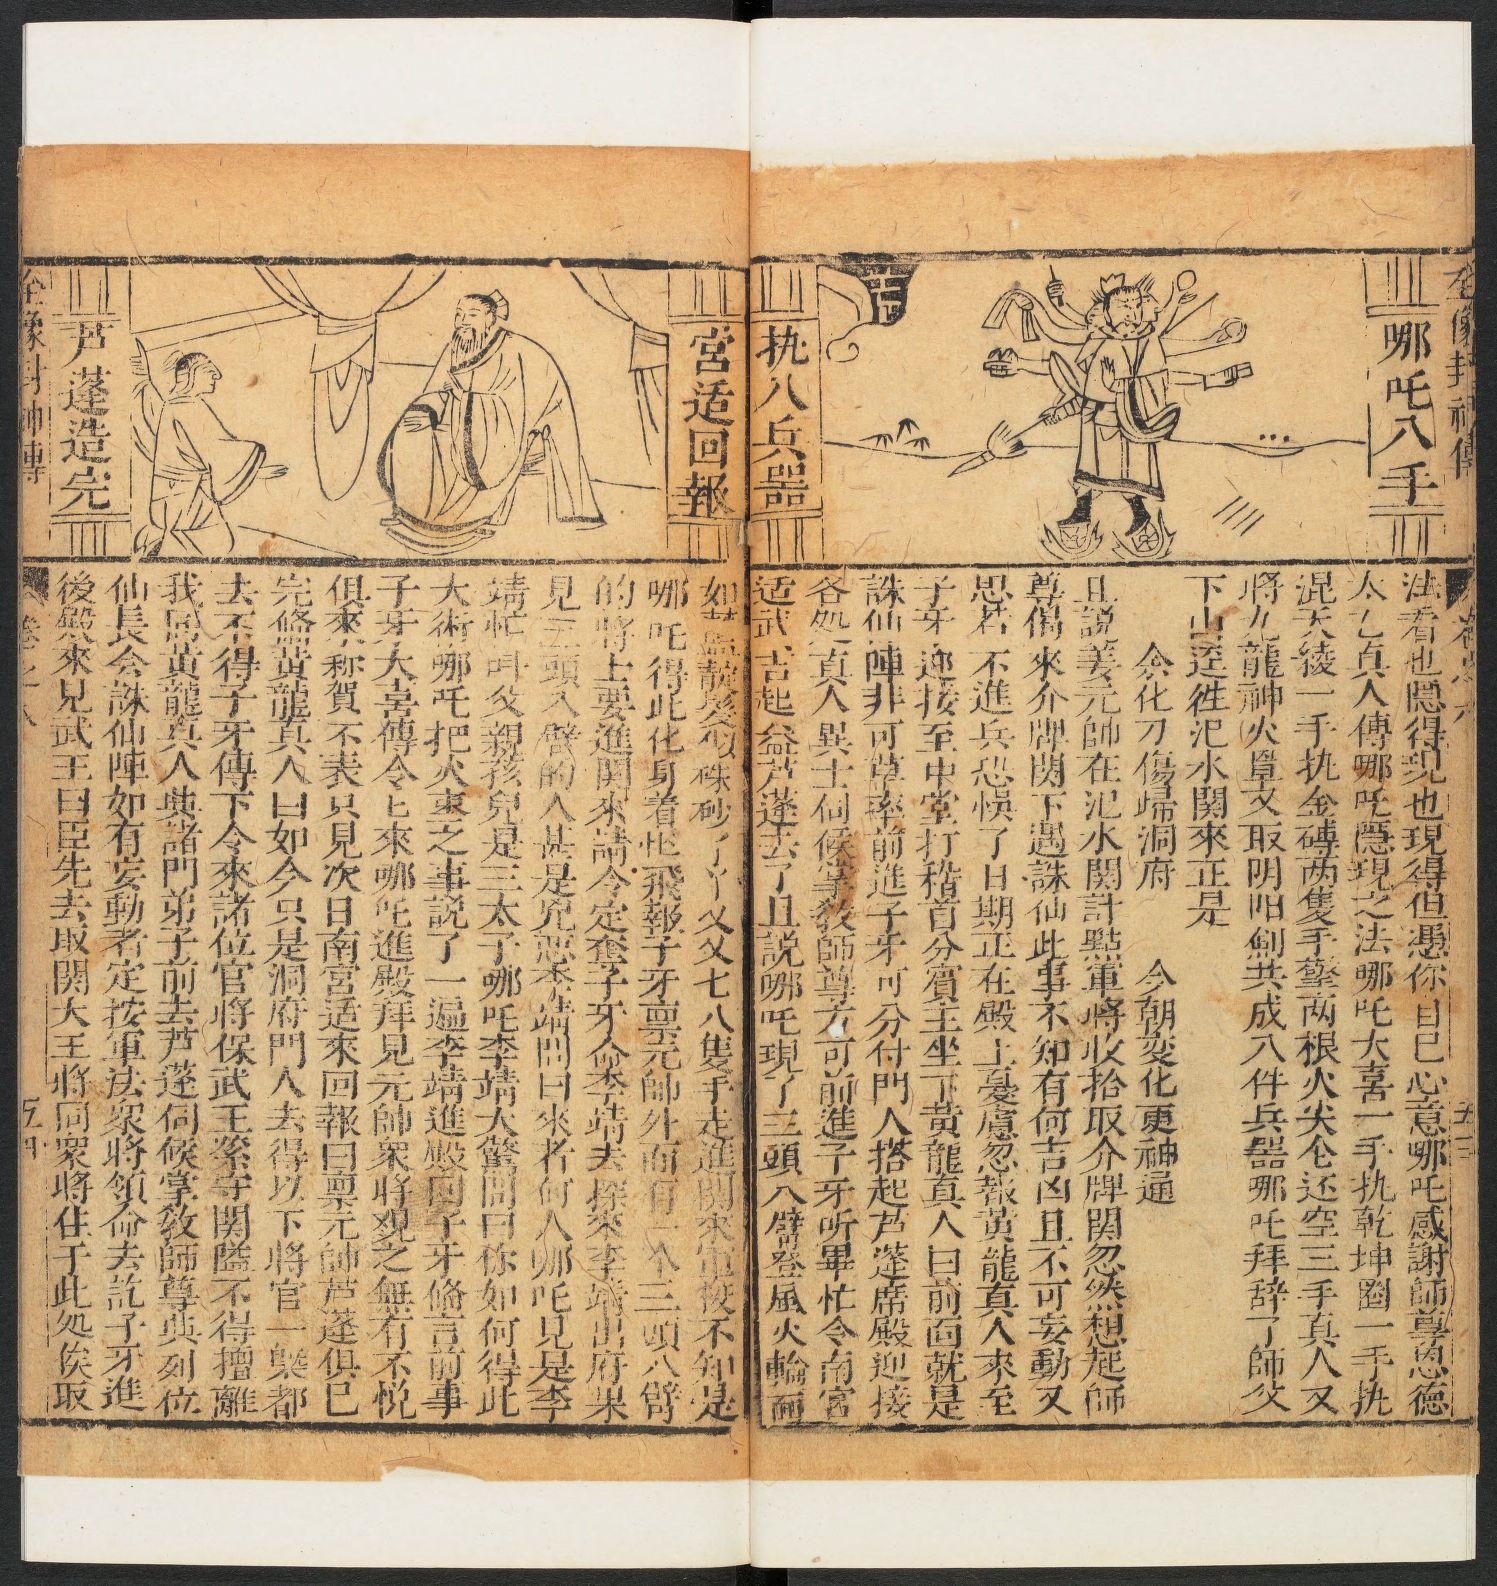 全像封神傳
哪吒八手
执八兵噐
法看也隱得現也現得但憑你自巳心意哪吒感謝師尊恩德
太乙真人傳哪吒隱現之法哪吒大喜一手执乾坤圈一手执
混天綾一手执金磚两隻手擎两根火尖仓还空三手真人又
將九龍神火罩又取阴阳劍共成八件兵噐哪吒拜辞了師父
下山逕徃汜水関來正是
余化刀傷歸洞府　今朝变化更神通
且説姜元帥在汜水関計點軍將收拾取介牌関忽然想起師
尊偈來介牌関下遇誅仙此事不知有何吉凶且不可妄動又
思若不進兵恐悞了日期正在殿上憂慮忽報黄龍真人來至
子牙迎接至中堂打稽首分賓主坐下黄龍真人曰前面就是
誅仙陣非可草率前進子牙可分付門人搭起芦蓬席殿迎接
各処真人異士伺候掌教師尊方可前進子牙听畢忙令南宮
适武吉起盖芦蓬去了且説哪吒現了三頭八臂登風火輪面
宮适回報
芦蓬造完
如藍靛髮似硃砂丫丫叉叉七八隻手走進関來軍校不知是
哪吒得此化身着忙飛報子牙禀元帥外面有一个三頭八臂
的將士要進関來請令定奪子牙命李靖去探來李靖出府果
見三頭八臂的人甚是兇悪李靖問曰來者何人哪吒見是李
靖忙叫父親孩兒是三太子哪吒李靖大驚問曰你如何得此
大術哪吒把火棗之事説了一遍李靖進殿回子牙俻言前事
子牙大喜傳令上來哪吒進殿拜見元帥衆將观之無有不悦
俱來称賀不表只見次日南宮适來回報曰禀元帥芦蓬俱已
完俻黄龍真人曰如今只是洞府門人去得以下將官一槩都
去不得子牙傳下令來諸位官將保武王緊守関隘不得擅離
我同黄龍真人與諸門弟子前去芦蓬伺候掌敎師尊與列位
仙長会誅仙陣如有妄動者定按軍法衆將領命去訖子牙進
後殿來見武王曰臣先去取関大王將同衆將住于此処俟取
全像封神傳
五四